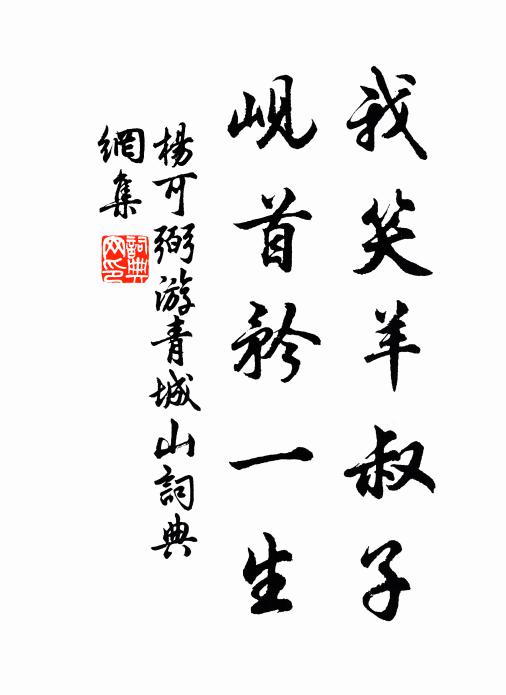 我笑羊叔子
峴首矜一生
楊可弼游青城山詞典
網集
詞典網印